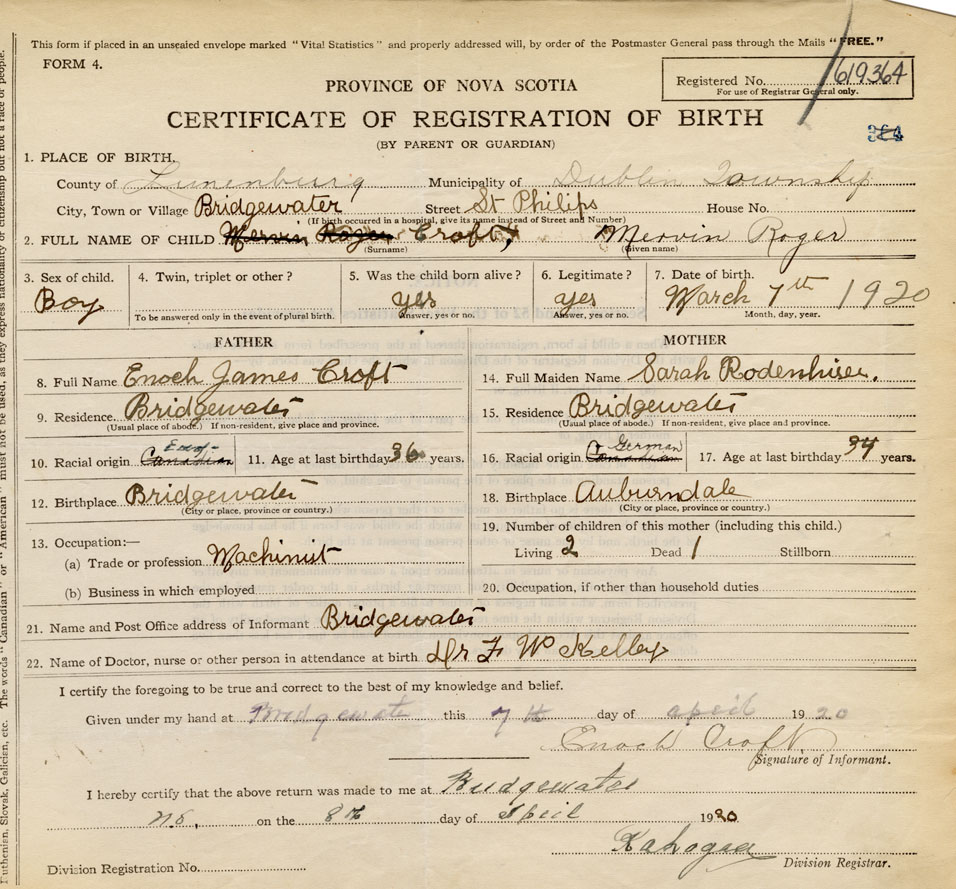 This form if placed in an unsealed envelope marked "Vital Statistics" and properly addressed will, by order of the Postmaster General pass through the Mails "FREE."
FORM 4.
Registered No. 619364
For use of Registrar General only.
PROVINCE OF NOVA SCOTIA
CERTIFICATE OF REGISTRATION OF BIRTH
(BY PARENT OR GUARDIAN)
364
1. PLACE OF BIRTH.
County of Lunenburg Municipality of Dublin Township
City, Town or Village Bridgewater Street St Philips House No.
(If birth occurred in a hospital, give its name instead of Street and Number)
2. FULL NAME OF CHILD Mervin Roger Croft, Mervin Roger
(Surname) (Given name)
3. Sex of child. 4. Twin, triplet or other? 5. Was the child born alive? 6. Legitimate? 7. Date of birth.
Boy yes yes March 7th 1920
To be answered only in the event of plural birth. Answer, yes or no. Answer, yes or no. Month, day, year.
FATHER MOTHER
8. Full Name Enoch James Croft 14. Full Maiden Name Sarah Rodenhiser.
9. Residence Bridgewater 15. Residence Bridgewater
(Usual place of abode.) If non-resident, give place and province. (Usual place of abode.) If non-resident, give place and province.
10. Racial origin Canadian 11. Age at last birthday 36 years. 16. Racial origin Canadian German 17. Age at last birthday 34 years.
12. Birthplace Bridgewater 18. Birthplace Auburndale
(City or place, province or country.) (City or place, province or country.)
19. Number of children of this mother (including this child.)
13. Occupation:—
Living 2 Dead 1 Stillborn
(a) Trade or profession Machinist
(b) Business in which employed 20. Occupation, if other than household duties
21. Name and Post Office address of Informant Bridgewater
22. Name of Doctor, nurse or other person in attendance at birth Dr F W Kelley
I certify the foregoing to be true and correct to the best of my knowledge and belief.
Given under my hand at Bridgewater this 7th day of april 1920
Enoch Croft
Signature of Informant.
I hereby certify that the above return was made to me at Bridgewater
N.S. on the 8th day of April 1920
Division Registrar.
Division Registration No.
uthenian, Slovak, Galician, etc. The words "Canadian" or "American" must not be used, as they express nationality or citizenship but not a race or people.